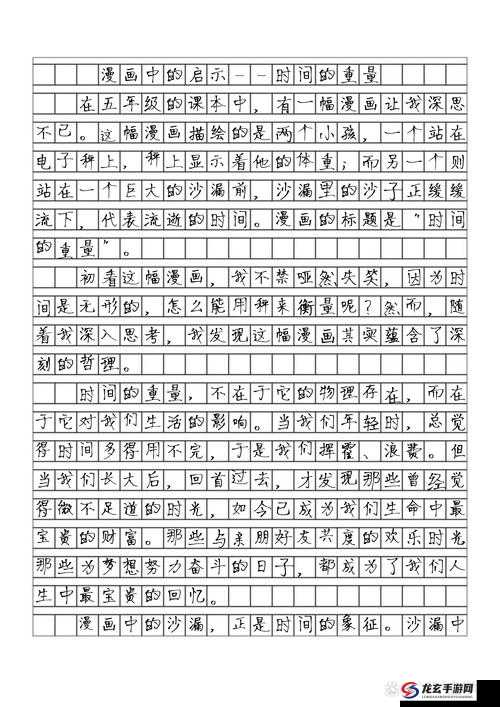 漫画中的启示--时间的重量
在五年级的课本中，有一幅漫画让我深思
不已。这幅漫画描绘的是两个小孩，一个站在
电子秤上，秤上显示着他的体重；而另一个则
站在一个巨大的沙漏前，沙漏里的沙子正缓缓
流下，代表流逝的时间。漫画的标题是"时间
的重量"。
初看这幅漫画，我不禁哑然失笑，因为时
间是无形的，怎么能用秤来衡量呢？然而，随
着我深入思考，我发现这幅漫画其实蕴含了深
刻的哲理。
时间的重量，不在于它的物理存在，而在
于它对我们生活的影响。当我们年轻时，总觉
得时间多得用不完，于是我们挥霍、浪费。但
当我们长大后，回首过去，才发现那些曾经觉
得微不足道的时光，如今已成为我们生命中最
宝贵的财富。那些与亲朋好友共度的欢乐时光
那些为梦想努力奋斗的日子，都成为了我们人
生中最宝贵的回忆。
漫画中的沙漏，正是时间的象征。沙漏中
龙玄手游网